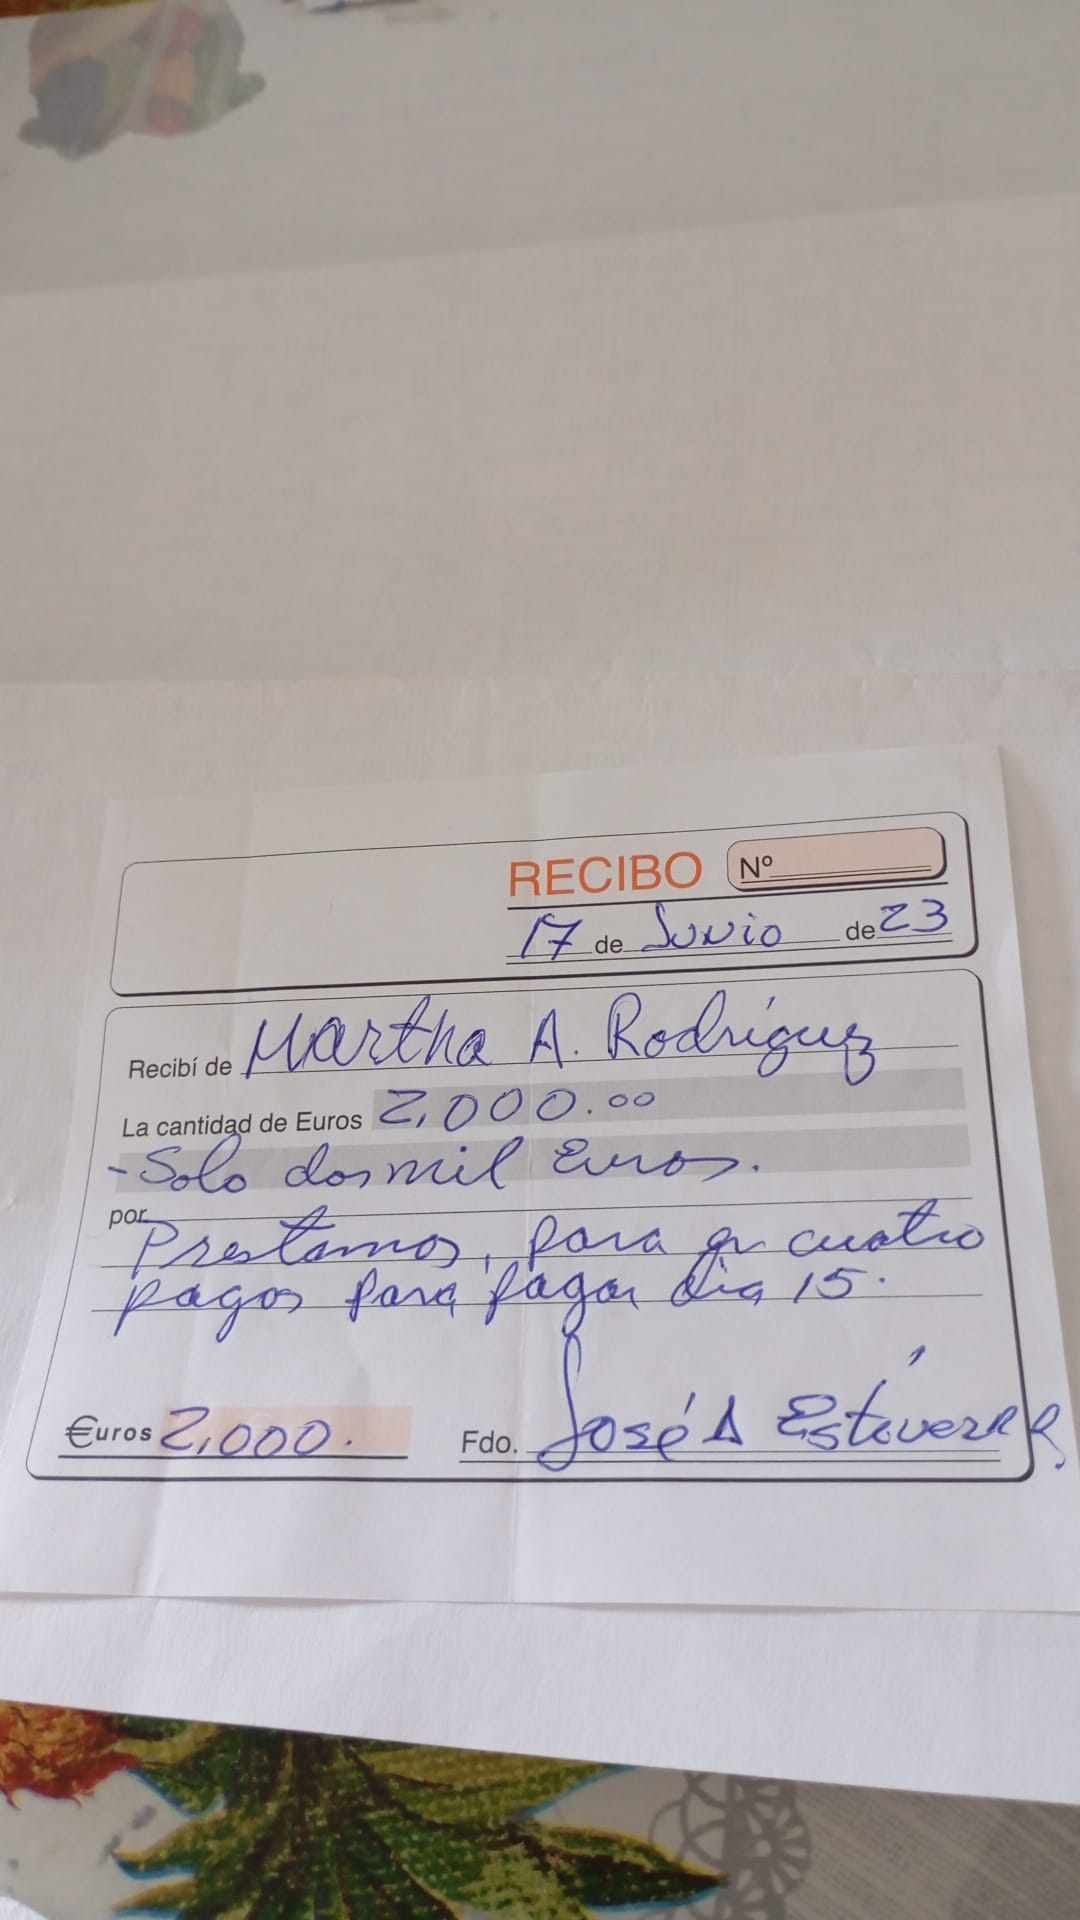 RECIBO Nº
17 de Junio de 23
Recibí de Martha A. Rodríguez
La cantidad de Euros 2,000.00
- Solo dos mil Euros.
por
Prestamos, para en cuatro
pagos para pagar dia 15.
€uros 2,000. Fdo. José A Estévez R